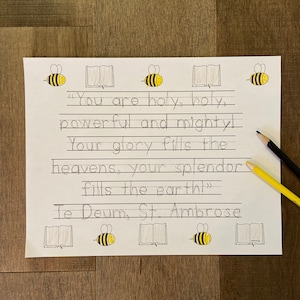 "You are holy, holy,
powerful and mighty!
Your glory fills the
heavens, your splendor
fills the earth!"
Te Deum, St. Ambrose